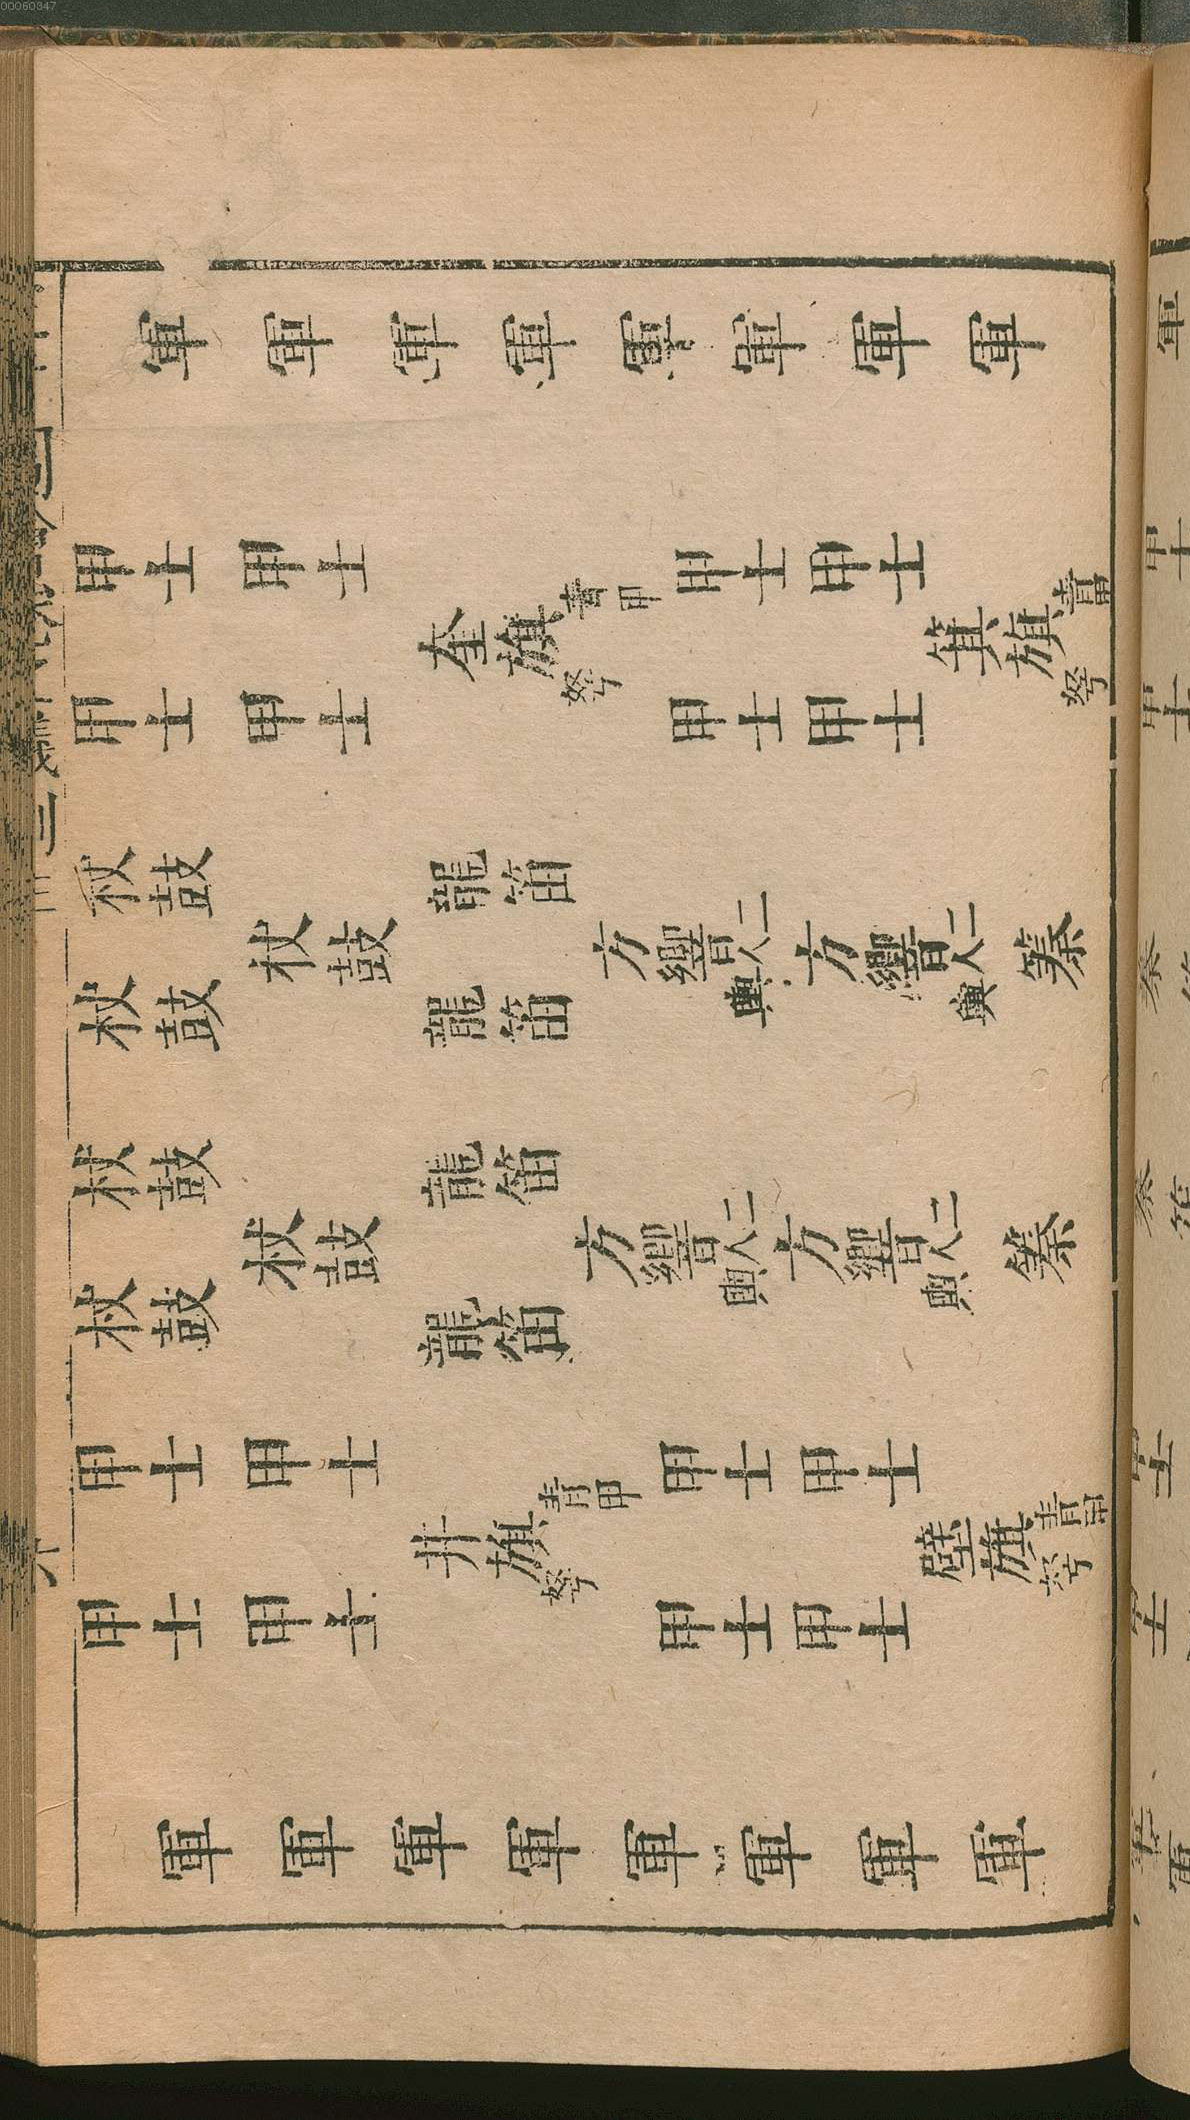 軍 軍 軍 軍 軍 軍 軍 軍
甲士 甲士 甲士 甲士
奎旗 青甲 弩 箕旗 青甲 弩
甲士 甲士 甲士 甲士
杖鼓 龍笛
杖鼓 方響 二人輿 方響 二人輿
杖鼓 龍笛
杖鼓 龍笛
杖鼓 方響 二人輿 方響 二人輿
杖鼓 龍笛
甲士 甲士 甲士 甲士
井旗 青甲 弩 壁旗 青甲 弩
甲士 甲士 甲士 甲士
軍 軍 軍 軍 軍 軍 軍 軍
00060347